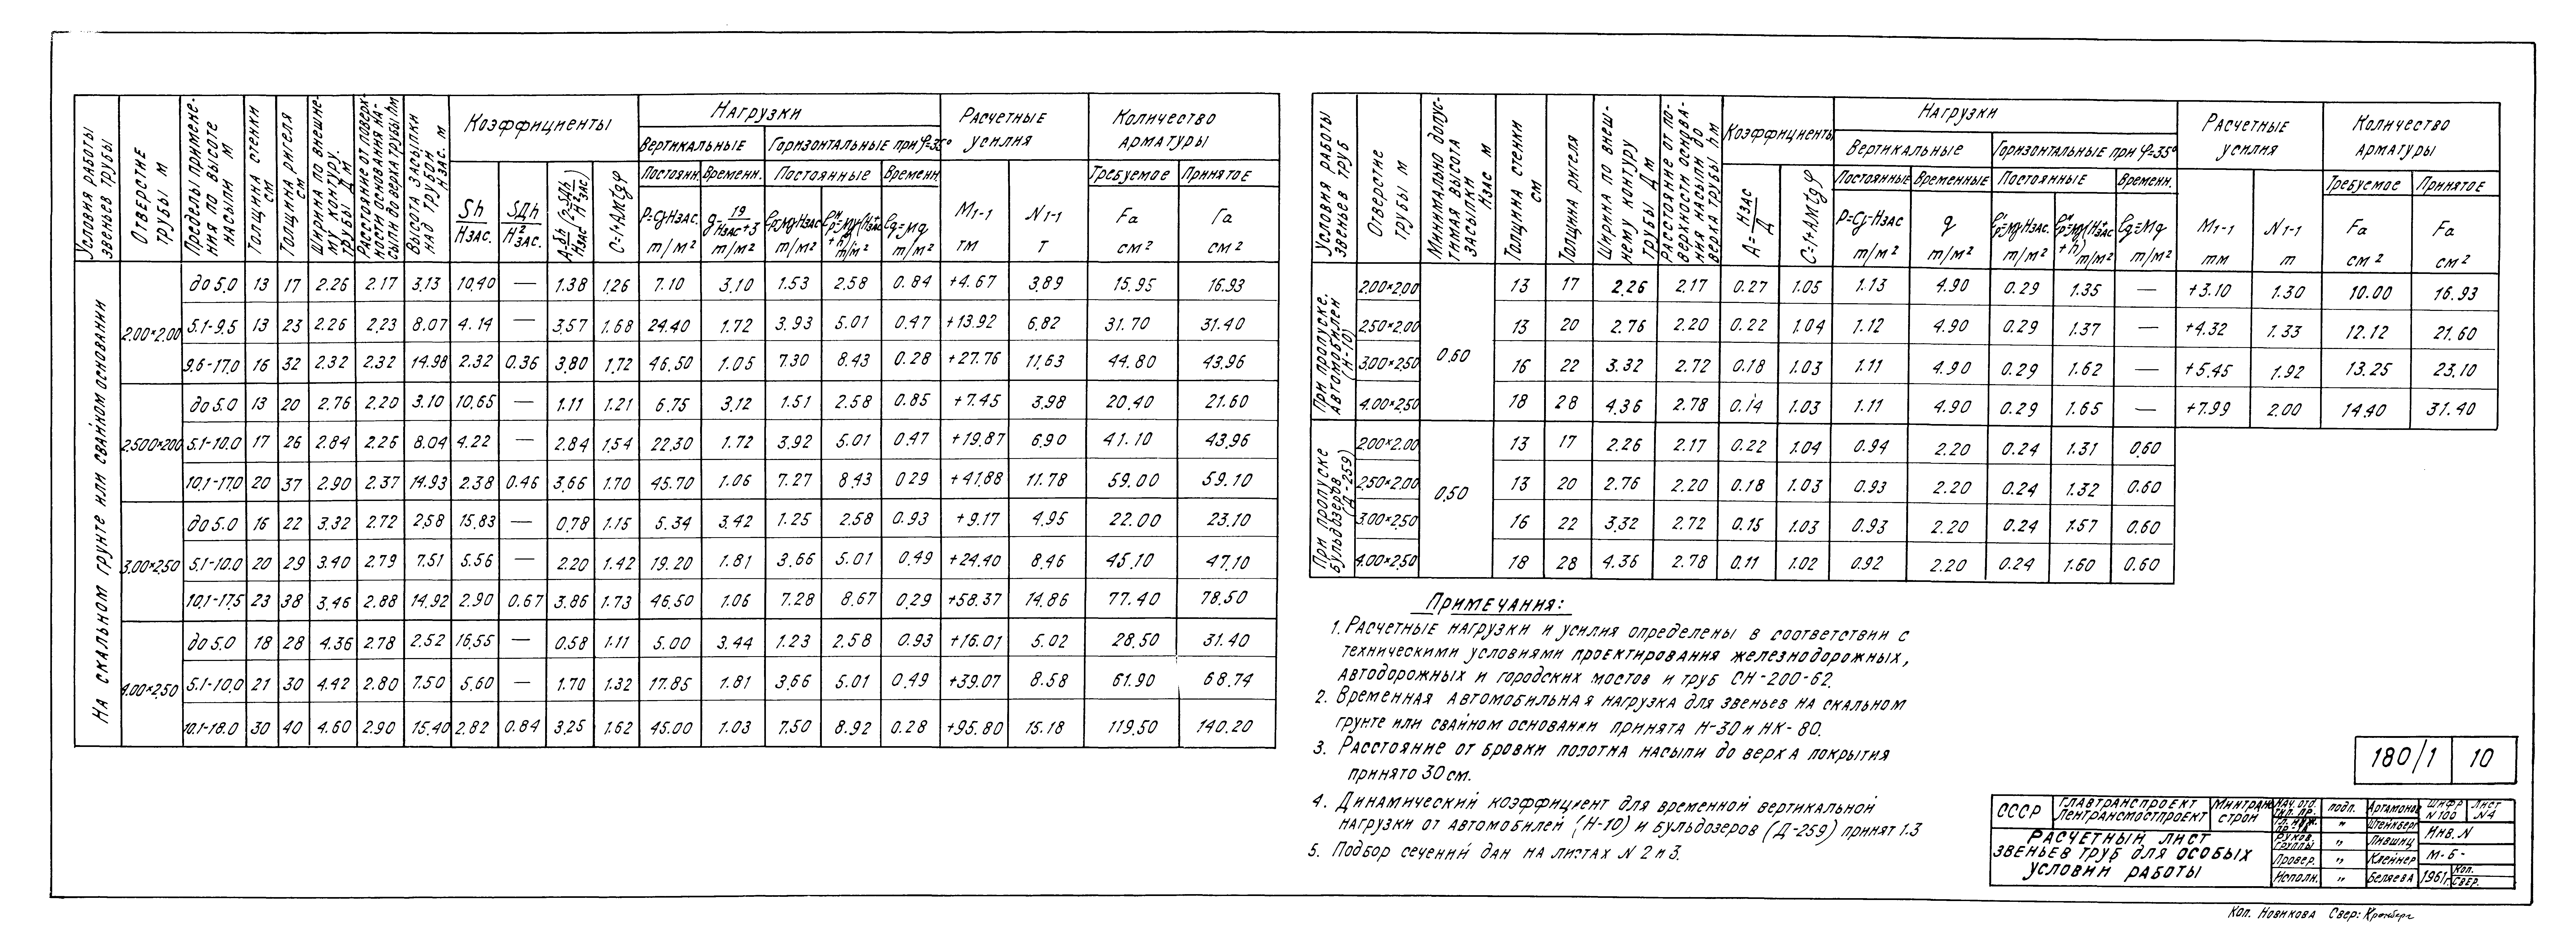 Условия работы звеньев трубы | Отверстие трубы м | Пределы применения по высоте насыпи м | Толщина стенки см | Толщина ригеля см | Ширина по внешнему контуру трубы Дм | Расстояние от поверхности основания насыпи до верха трубы hм | Высота засыпки над трубой Hзас. м | Коэффициенты | Нагрузки | Расчетные усилия | Количество арматуры
Вертикальные | Горизонтальные при φ=35°
Постоян. | Временн. | Постоянные | Временн. | Требуемое | Принятое
Sh/Hзас. | SДh/H²зас. | C=1+AMtgφ | P=CγHзас. т/м² | g=19/Hзас+3 т/м² | т/м² | т/м² | eg=Mg т/м² | M1-1 тм | N1-1 т | Fa см² | Fa см²
На скальном грунте или свайном основании
2.00×2.00 | до 5.0 | 13 | 17 | 2.26 | 2.17 | 3.13 | 10.40 | — | 1.38 | 1.26 | 7.10 | 3.10 | 1.53 | 2.58 | 0.84 | +4.67 | 3.89 | 15.95 | 16.93
5.1-9.5 | 13 | 23 | 2.26 | 2.23 | 8.07 | 4.14 | — | 3.57 | 1.68 | 24.40 | 1.72 | 3.93 | 5.01 | 0.47 | +13.92 | 6.82 | 31.70 | 31.40
9.6-17.0 | 16 | 32 | 2.32 | 2.32 | 14.98 | 2.32 | 0.36 | 3.80 | 1.72 | 46.50 | 1.05 | 7.30 | 8.43 | 0.28 | +27.76 | 11.63 | 44.80 | 43.96
2.500×200 | до 5.0 | 13 | 20 | 2.76 | 2.20 | 3.10 | 10.65 | — | 1.11 | 1.21 | 6.75 | 3.12 | 1.51 | 2.58 | 0.85 | +7.45 | 3.98 | 20.40 | 21.60
5.1-10.0 | 17 | 26 | 2.84 | 2.26 | 8.04 | 4.22 | — | 2.84 | 1.54 | 22.30 | 1.72 | 3.92 | 5.01 | 0.47 | +19.87 | 6.90 | 41.10 | 43.96
10.1-17.0 | 20 | 37 | 2.90 | 2.37 | 14.93 | 2.38 | 0.46 | 3.66 | 1.70 | 45.70 | 1.06 | 7.27 | 8.43 | 0.29 | +41.88 | 11.78 | 59.00 | 59.10
3.00×2.50 | до 5.0 | 16 | 22 | 3.32 | 2.72 | 2.58 | 15.83 | — | 0.78 | 1.15 | 5.34 | 3.42 | 1.25 | 2.58 | 0.93 | +9.17 | 4.95 | 22.00 | 23.10
5.1-10.0 | 20 | 29 | 3.40 | 2.79 | 7.51 | 5.56 | — | 2.20 | 1.42 | 19.20 | 1.81 | 3.66 | 5.01 | 0.49 | +24.40 | 8.46 | 45.10 | 47.10
10.1-17.5 | 23 | 38 | 3.46 | 2.88 | 14.92 | 2.90 | 0.67 | 3.86 | 1.73 | 46.50 | 1.06 | 7.28 | 8.67 | 0.29 | +58.37 | 14.86 | 77.40 | 78.50
4.00×2.50 | до 5.0 | 18 | 28 | 4.36 | 2.78 | 2.52 | 16.55 | — | 0.58 | 1.11 | 5.00 | 3.44 | 1.23 | 2.58 | 0.93 | +16.01 | 5.02 | 28.50 | 31.40
5.1-10.0 | 21 | 30 | 4.42 | 2.80 | 7.50 | 5.60 | — | 1.70 | 1.32 | 17.85 | 1.81 | 3.66 | 5.01 | 0.49 | +39.07 | 8.58 | 61.90 | 68.74
10.1-18.0 | 30 | 40 | 4.60 | 2.90 | 15.40 | 2.82 | 0.84 | 3.25 | 1.62 | 45.00 | 1.03 | 7.50 | 8.92 | 0.28 | +95.80 | 15.18 | 119.50 | 140.20
Условия работы звеньев труб | Отверстие трубы м | Минимально допустимая высота засыпки Hзас м | Толщина стенки см | Толщина ригеля | Ширина по внешнему контуру трубы Дм | Расстояние от поверхности основания насыпи до верха трубы hм | Коэффициенты | Нагрузки | Расчетные усилия | Количество арматуры
Вертикальные | Горизонтальные при φ=35°
Постоянные | Временные | Постоянные | Временн. | Требуемое | Принятое
A=Hзас/Д | C=1+AMtgφ | P=Cγ·Hзас т/м² | g т/м² | т/м² | т/м² | eg=Mg т/м² | M1-1 тм | N1-1 т | Fa см² | Fa см²
При пропуске автомобилей (Н-10) | 0.60
2.00×2.00 | 13 | 17 | 2.26 | 2.17 | 0.27 | 1.05 | 1.13 | 4.90 | 0.29 | 1.35 | — | +3.10 | 1.30 | 10.00 | 16.93
2.50×2.00 | 13 | 20 | 2.76 | 2.20 | 0.22 | 1.04 | 1.12 | 4.90 | 0.29 | 1.37 | — | +4.32 | 1.33 | 12.12 | 21.60
3.00×2.50 | 16 | 22 | 3.32 | 2.72 | 0.18 | 1.03 | 1.11 | 4.90 | 0.29 | 1.62 | — | +5.45 | 1.92 | 13.25 | 23.10
4.00×2.50 | 18 | 28 | 4.36 | 2.78 | 0.14 | 1.03 | 1.11 | 4.90 | 0.29 | 1.65 | — | +7.99 | 2.00 | 14.40 | 31.40
При пропуске бульдозеров (Д-259) | 0.50
2.00×2.00 | 13 | 17 | 2.26 | 2.17 | 0.22 | 1.04 | 0.94 | 2.20 | 0.24 | 1.31 | 0.60
2.50×2.00 | 13 | 20 | 2.76 | 2.20 | 0.18 | 1.03 | 0.93 | 2.20 | 0.24 | 1.32 | 0.60
3.00×2.50 | 16 | 22 | 3.32 | 2.72 | 0.15 | 1.03 | 0.93 | 2.20 | 0.24 | 1.57 | 0.60
4.00×2.50 | 18 | 28 | 4.36 | 2.78 | 0.11 | 1.02 | 0.92 | 2.20 | 0.24 | 1.60 | 0.60
Примечания:
1. Расчетные нагрузки и усилия определены в соответствии с
техническими условиями проектирования железнодорожных,
автодорожных и городских мостов и труб СН-200-62.
2. Временная автомобильная нагрузка для звеньев на скальном
грунте или свайном основании принята Н-30 и НК-80.
3. Расстояние от бровки полотна насыпи до верха покрытия
принято 30 см.
4. Динамический коэффициент для временной вертикальной
нагрузки от автомобилей (Н-10) и бульдозеров (Д-259) принят 1.3
5. Подбор сечений дан на листах N 2 и 3.
180/1 | 10
СССР | Главтранспроект Ленгрансмостпроект | Минтрансстрой
Расчетный лист
звеньев труб для особых
условий работы
Нач. отд. | подп. | Артамонов | Шифр N 100 | Лист N4
Гл. инж. пр-та | " | Штейнберг | Инв. N
Руков. группы | " | Лившиц
Провер. | " | Клейнер | М-б -
Исполн. | " | Беляева | 1961г. | Коп. Свер.
Коп. Новикова Свер: